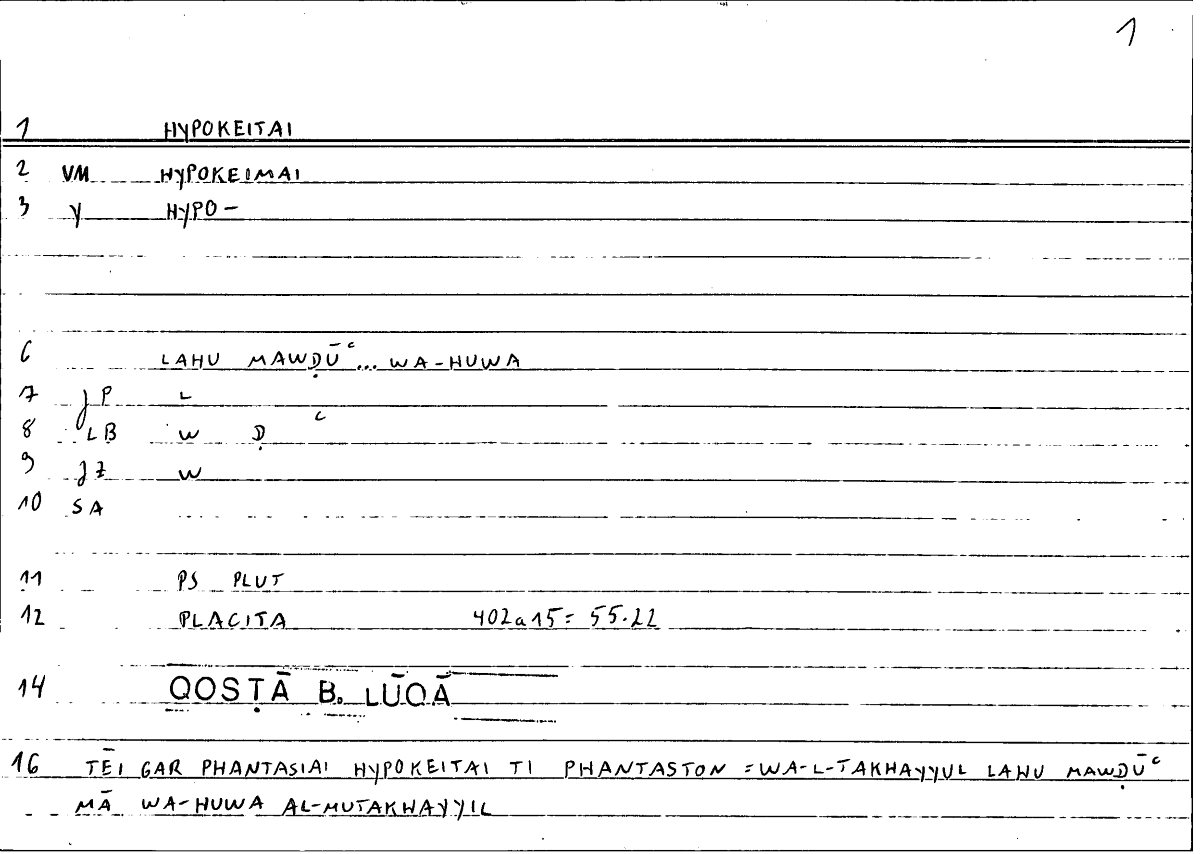 1
1 HYPOKEITAI
2 VM HYPOKEIMAI
3 Y HYPO-
6 LAHU MAWḌŪʿ... WA-HUWA
7 JP L
8 LB W Ḍ ʿ
9 JZ W
10 SA
11 PS PLUT
12 PLACITA 402a15= 55.22
14 QOSṬĀ B. LŪQĀ
16 TĒI GAR PHANTASIAI HYPOKEITAI TI PHANTASTON =WA-L-TAKHAYYUL LAHU MAWḌŪʿ
MĀ WA-HUWA AL-MUTAKHAYYIL